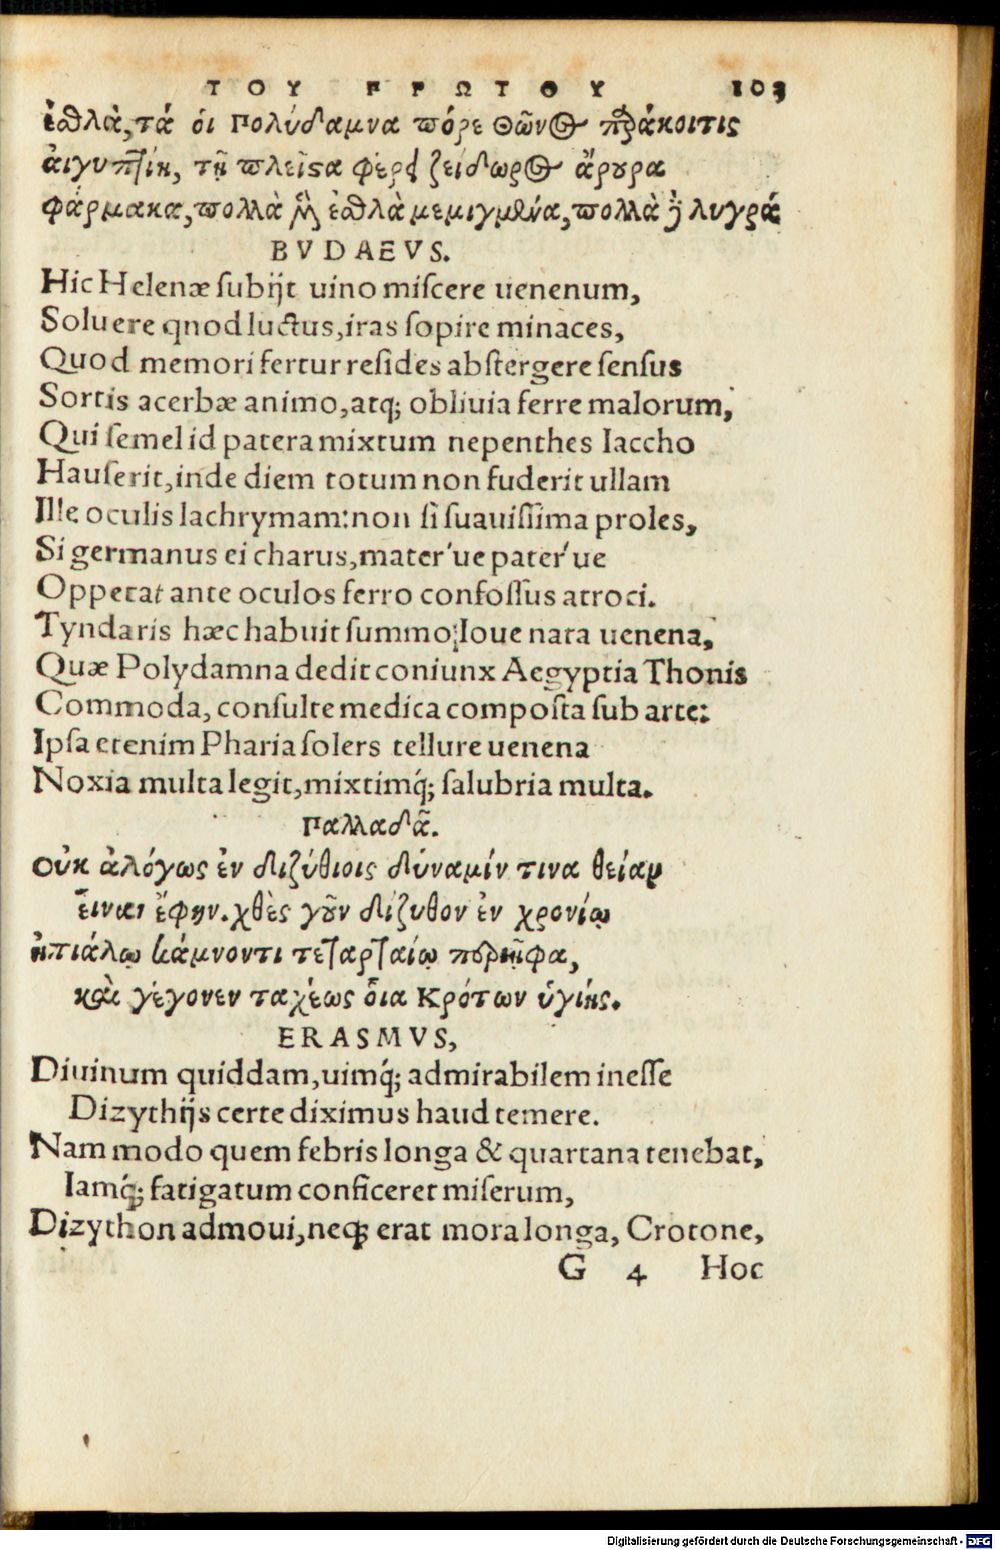 ΤΟΥ ΠΡΩΤΟΥ 103
ἐσθλὰ, τά οἱ Πολύδαμνα πόρε Θῶνος παράκοιτις
ἀιγυπτίη, τῇ πλεῖστα φέρει ζείδωρος ἄρουρα
φάρμακα, πολλὰ μὲν ἐσθλὰ μεμιγμένα, πολλὰ δὲ λυγρά
BVDAEVS.
Hic Helenæ subijt uino miscere uenenum,
Soluere qnod luctus, iras sopire minaces,
Quod memori fertur resides abstergere sensus
Sortis acerbæ animo, atq; obliuia ferre malorum,
Qui semel id patera mixtum nepenthes Iaccho
Hauserit, inde diem totum non fuderit ullam
Ille oculis lachrymam: non si suauissima proles,
Si germanus ei charus, mater'ue pater'ue
Oppetat ante oculos ferro confossus atroci.
Tyndaris hæc habuit summo Ioue nata uenena,
Quæ Polydamna dedit coniunx Aegyptia Thonis
Commoda, consulte medica composta sub arte:
Ipsa etenim Pharia solers tellure uenena
Noxia multa legit, mixtimq́; salubria multa.
Παλλαδᾶ.
Οὐκ ἀλόγως ἐν διζύθιοις δύναμίν τινα θείαν
εἶναι ἔφην. χθὲς γοῦν δίζυθον ἐν χρονίῳ
ἠπιάλῳ κάμνοντι τεταρταίῳ περιῆψα,
καὶ γέγονεν ταχέως οἷα Κρότων ὑγιής.
ERASMVS,
Diuinum quiddam, uimq́; admirabilem inesse
Dizythijs certe diximus haud temere.
Nam modo quem febris longa & quartana tenebat,
Iamq́; fatigatum conficeret miserum,
Dizython admoui, neq; erat mora longa, Crotone,
G 4 Hoc
Digitalisierung gefördert durch die Deutsche Forschungsgemeinschaft - DFG